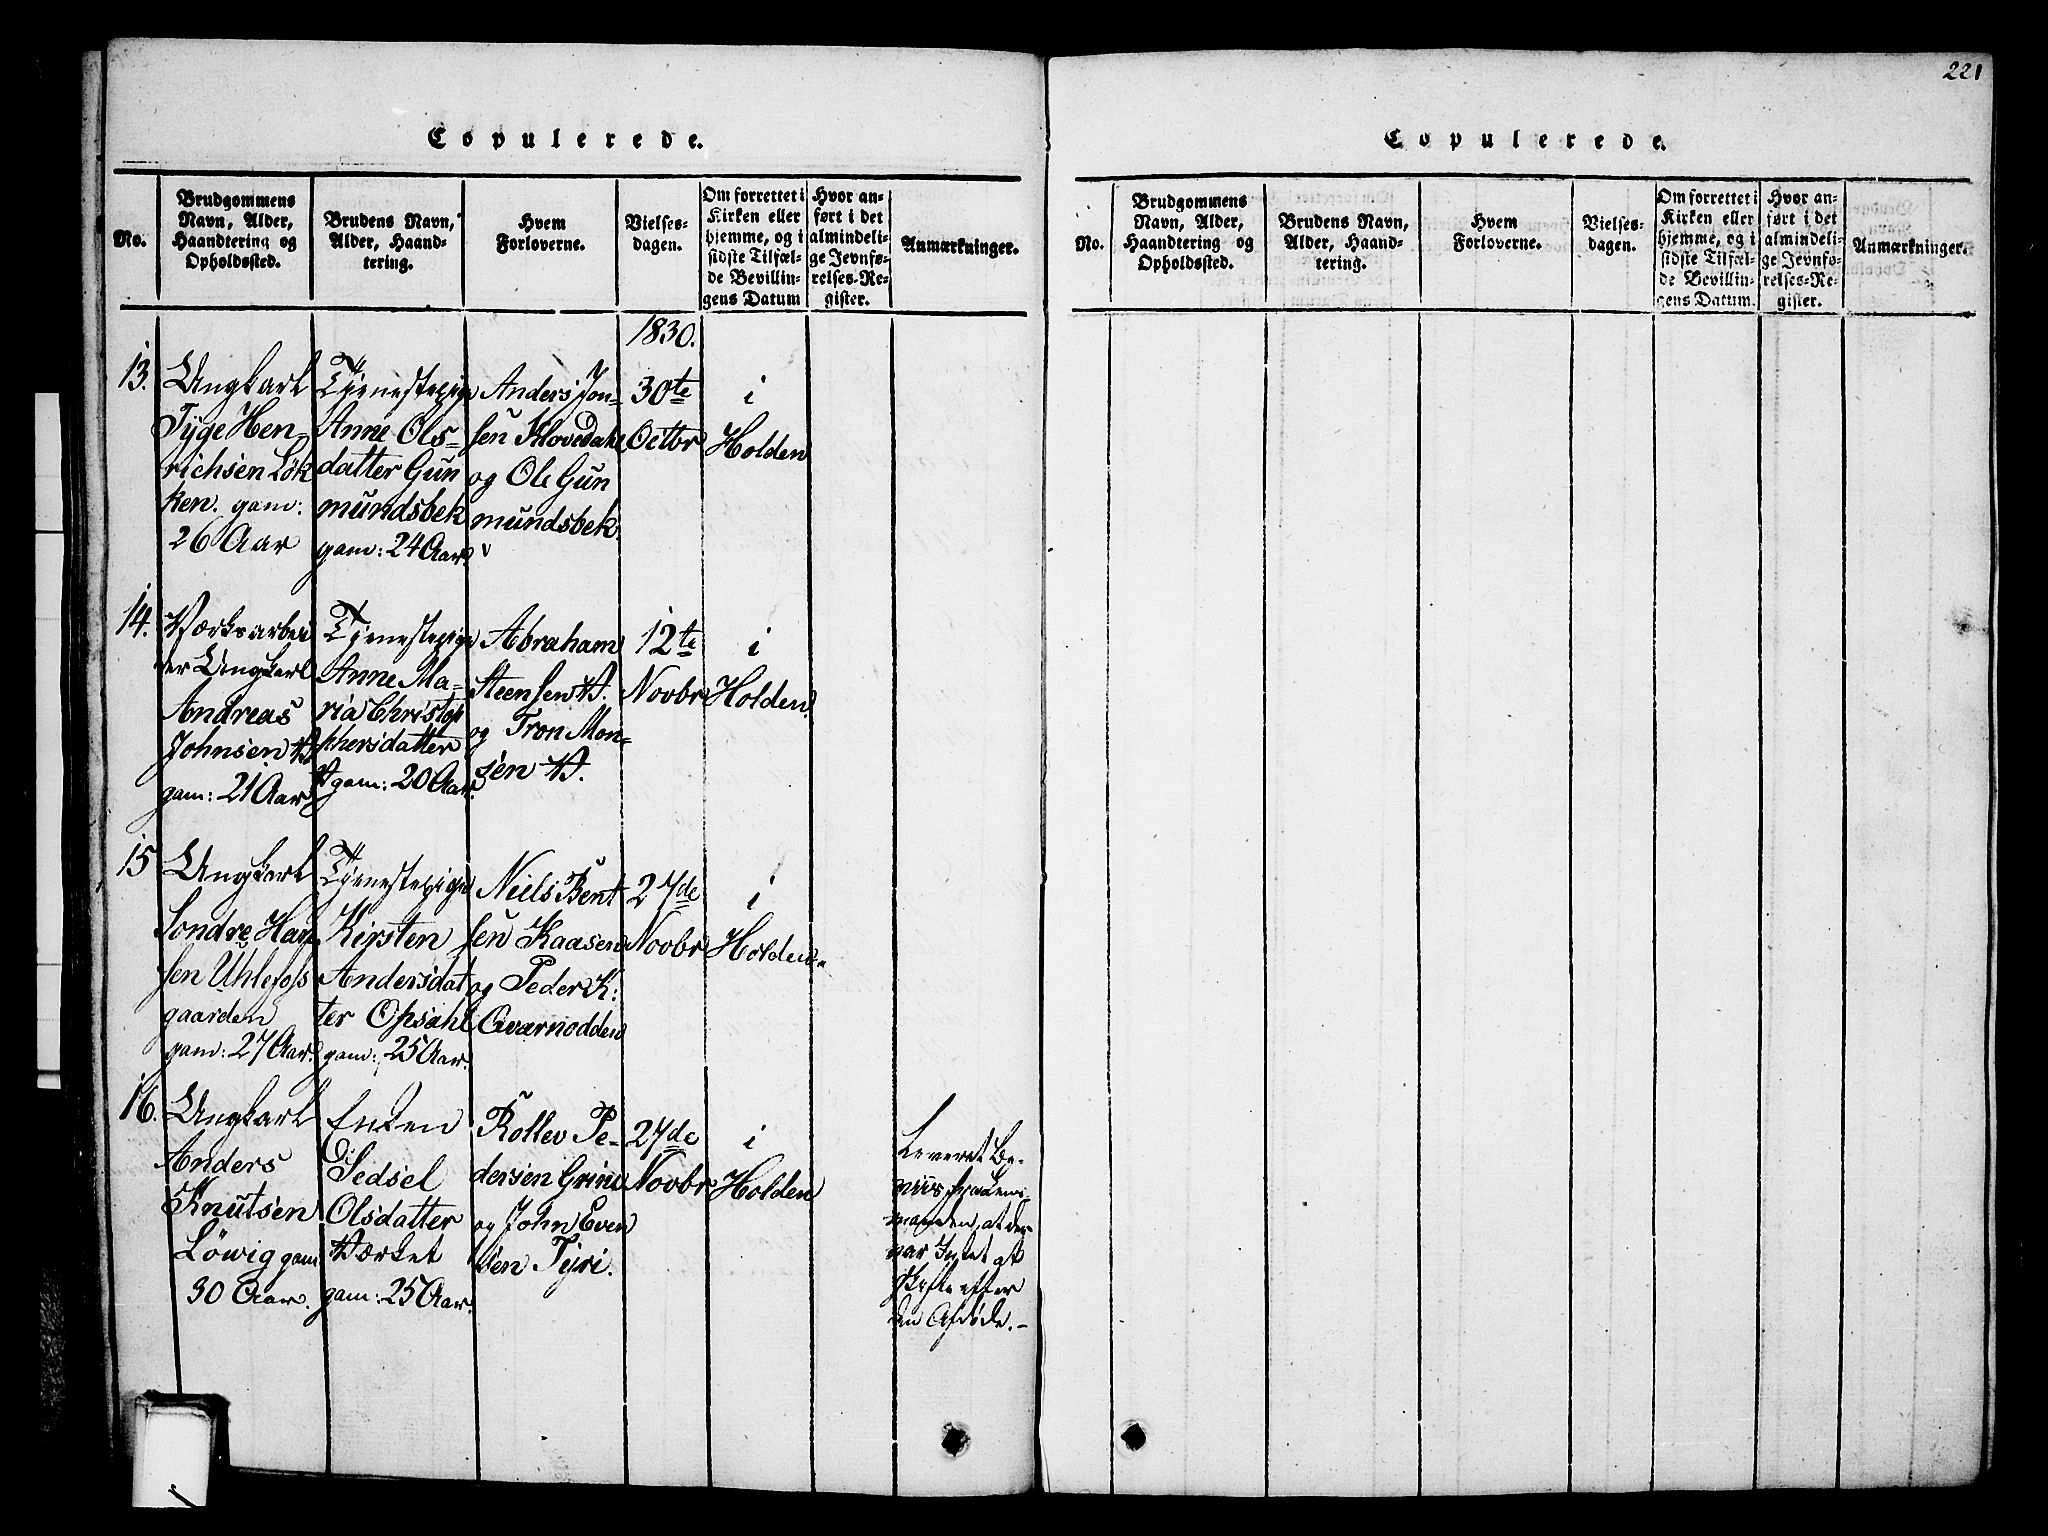 221
Copulerede.
No.
Brudgommens
Navn, Alder,
Haandtering og
Opholdssted.
Brudens Navn,
Alder, Haand-
tering.
Hvem
Forloverne.
Vielses-
dagen.
Om forrettet i
Kirken eller
hjemme, og i
sidste Tilfæl-
de Bevillin-
gens Datum
Hvor an-
ført i det
almindeli-
ge Jevnfø-
relses-Re-
gister.
Anmærkninger.
1830.
13.
Ungkarl
Tyge Hen-
richsen Løk
ken. gam:
26 Aar
Tjenestepige
Anne Ols-
datter Gun
mundsbek
gam: 24 Aar.
Anders Jon-
sen Klovedahl
og Ole Gun
mundsbek
30te
Octbr
i
Holden
14.
Værksarbei
der Ungkarl
Andreas
Johnsen V.
gam: 21 Aar
Tjenestepige
Anne Ma-
ria Christop
hersdatter
V gam: 20 Aar.
Abraham
Steensen V.
og Tron Mon-
sen V.
12te
Novbr
i
Holden.
15
Ungkarl
Sondre Han
sen Uhlefoss
gaarden
gam: 27 Aar.
Tjenestepige
Kirsten
Andersdat
ter Opsahl
gam: 25 Aar.
Niels Bent
sen Kaasen
og Peder K:
Qvarnodden
27de
Novbr
i
Holden.
16.
Ungkarl
Anders
Knutsen
Löwig gam
30 Aar.
Enken
Sedsel
Olsdatter
Værket
gam: 25 Aar.
Rollev Pe-
dersen Grini
og John Even
sen Tyri.
27de
Novbr
i
Holden
Leveret Be-
viis fra Lens-
manden, at der
var Intet at
skifte efter
den Afdøde.-
Copulerede.
No.
Brudgommens
Navn, Alder,
Haandtering og
Opholdssted.
Brudens Navn,
Alder, Haand-
tering.
Hvem
Forloverne.
Vielses-
dagen.
Om forrettet i
Kirken eller
hjemme, og i
sidste Tilfæl-
de Bevillin-
gens Datum.
Hvor an-
ført i det
almindeli-
ge Jevnfø-
relses-Re-
gister.
Anmærkninger.